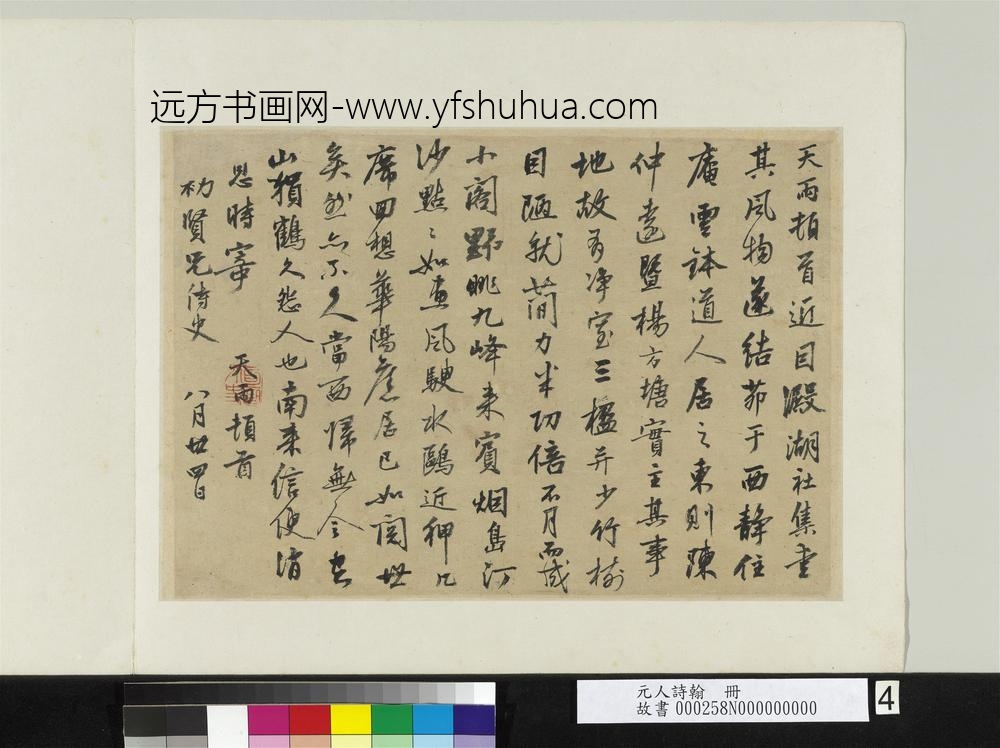 远方书画网-www.yfshuhua.com
天雨頓首近目澱湖社集重
其風物遂結茆于西靜住
庵雪鉢道人居之東則陳
仲遠暨楊方塘實主其事
地故有淨室三楹并少竹樹
目陋就簡力半功倍不月而成
小閣野眺九峰来賓烟島汀
沙點〻如畫風颿水鷗近狎几
席回想華陽舊居已如閱世
矣然亦不久當西歸無令空
山猨鶴久怨人也南来信使背
思時寧 天雨頓首
初賢兄侍史 八月廿四日
元人詩翰 冊
故書000258N000000000
4